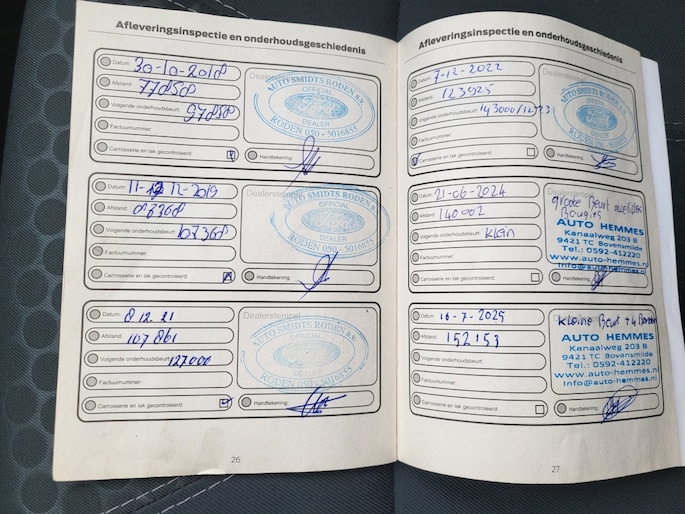 Afleveringsinspectie en onderhoudsgeschiedenis
Datum: 30-10-2018
Dealerstempel
Afstand: 77858
Volgende onderhoudsbeurt: 97858
Factuurnummer:
Carrosserie en lak gecontroleerd:
Handtekening:
AUTO SMIDTS RODEN B.V.
OFFICIAL
Ford
DEALER
RODEN 050 - 5016855
Datum: 11-12-2019
Dealerstempel
Afstand: 87368
Volgende onderhoudsbeurt: 107368
Factuurnummer:
Carrosserie en lak gecontroleerd:
Handtekening:
AUTO SMIDTS RODEN B.V.
OFFICIAL
DEALER
RODEN 050 - 5016855
Datum: 8 12 21
Dealerstempel
Afstand: 107861
Volgende onderhoudsbeurt: 127000
Factuurnummer:
Carrosserie en lak gecontroleerd:
Handtekening:
AUTO SMIDTS RODEN B.V.
OFFICIAL
DEALER
RODEN 050 - 5016855
26
Afleveringsinspectie en onderhoudsgeschiedenis
Datum: 7-12-2022
Dealerstempel
Afstand: 123925
Volgende onderhoudsbeurt: 143000/
Factuurnummer:
Carrosserie en lak gecontroleerd:
Handtekening:
AUTO SMIDTS RODEN B.V.
OFFICIAL
Ford
DEALER
RODEN 050 - 5016855
Datum: 21-06-2024
Dealerstempel
Afstand: 140002
Volgende onderhoudsbeurt: Klein
Factuurnummer:
Carrosserie en lak gecontroleerd:
Handtekening:
grote Beurt
Bougies
AUTO HEMMES
Kanaalweg 203 B
9421 TC Bovensmilde
Tel.: 0592-412220
www.auto-hemmes.nl
info@auto-hemmes.nl
Datum: 16-7-2025
Dealerstempel
Afstand: 152153
Volgende onderhoudsbeurt:
Factuurnummer:
Carrosserie en lak gecontroleerd:
Handtekening:
Kleine Beurt + 4
AUTO HEMMES
Kanaalweg 203 B
9421 TC Bovensmilde
Tel.: 0592-412220
www.auto-hemmes.nl
info@auto-hemmes.nl
27